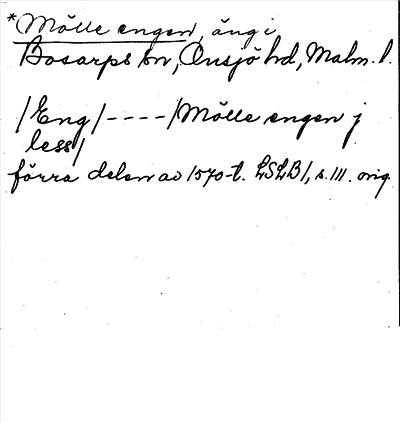 *Mölle engen, äng i
Bosarps sn, Onsjö hd, Malm. l.
/Eng/----/Mölle engen j
less/
förra delen av 1570-t. LSLB 1, s. 111. orig.